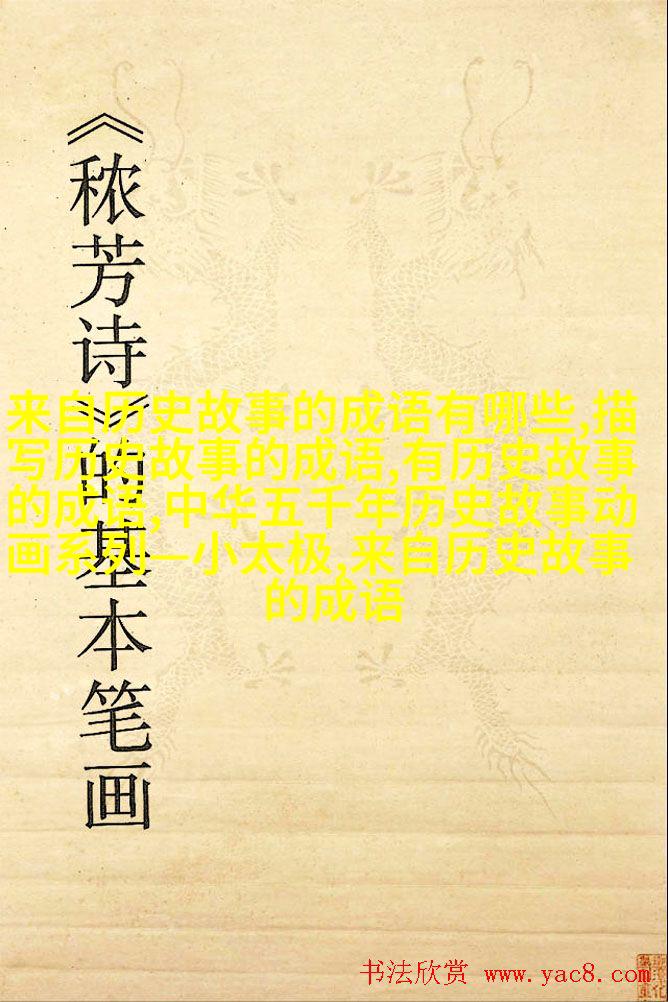 《秾芳诗》的基本笔画
来自历史故事的成语有哪些,描
写历史故事的成语,有历史故事
的成语,中华五千年历史故事动
画系列—小太极,来自历史故事
的成语
书法欣赏 www.yac8.com